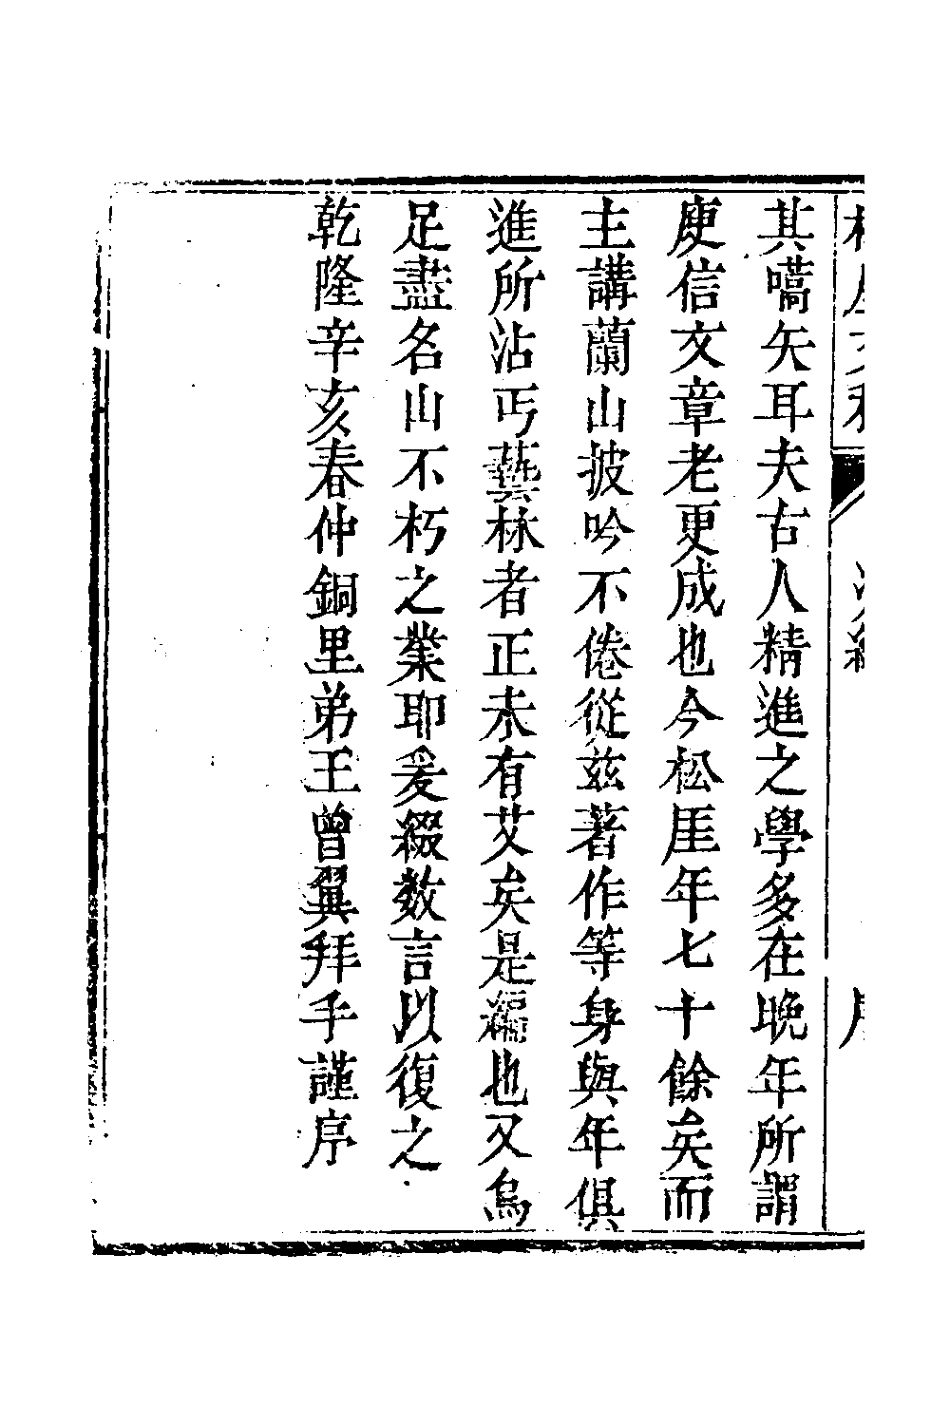 其嚆矢耳夫古人精進之學多在晚年所謂
庾信文章老更成也今松厓年七十餘矣而
主講蘭山披吟不倦從茲著作等身與年俱
進所沾丐藝林者正未有艾矣是編也又烏
足盡名山不朽之業耶爰綴数言以復之
乾隆辛亥春仲銅里弟王曾翼拜手謹序